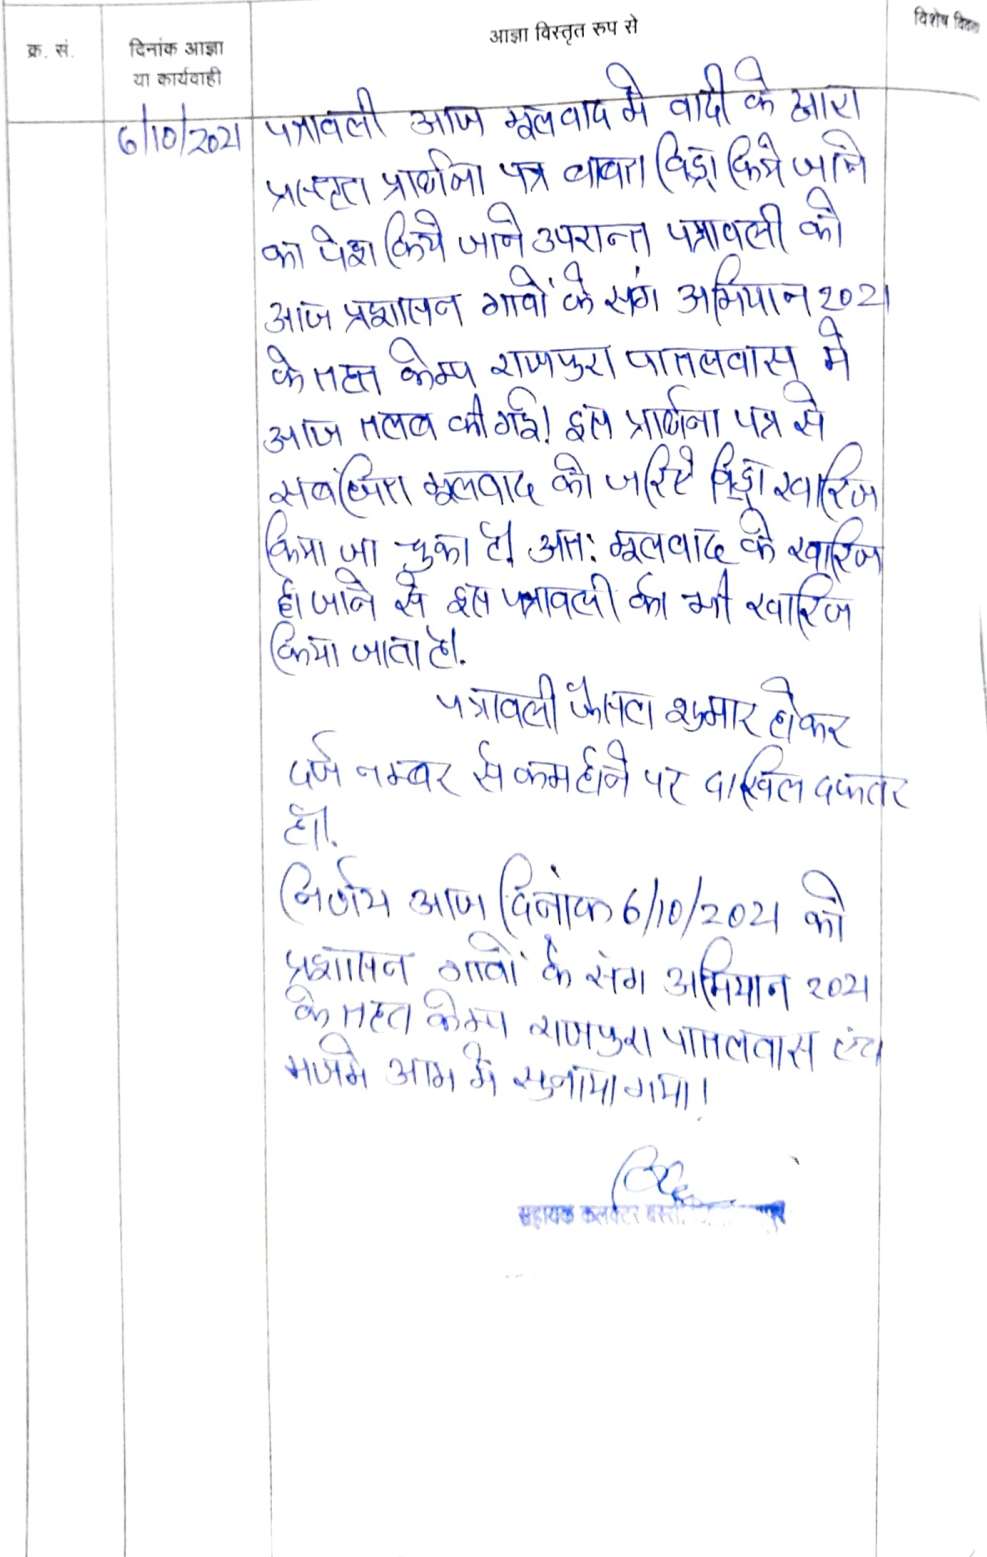 क्र. सं.
दिनांक आज्ञा
या कार्यवाही
आज्ञा विस्तृत रुप से
विशेष
6/10/2021
पत्रावली आज मूलवाद मे वादी के द्वारा
प्रस्तुत प्रार्थना पत्र बाबत विड्रो किये जाने
का पेश किये जाने उपरान्त पत्रावली को
आज प्रशासन गावों के संग अभियान 2021
के तहत केम्प राजपुरा पातलवास मे
आज तलब की गई। इस प्रार्थना पत्र से
सबंधित मूलवाद को जरिऐ विड्रो खारिज
किया जा चुका है। अत: मूलवाद के खारिज
हो जाने से इस पत्रावली को भी खारिज
किया जाता है।
पत्रावली फैसल शुमार होकर
दर्ज नम्बर से कम होने पर दाखिल दफ्तर
हो।
निर्णय आज दिनांक 6/10/2021 को
प्रशासन गावों के संग अभियान 2021
के तहत केम्प राजपुरा पातलवास
मजमे आम में सुनाया गया।
सहायक कलक्टर